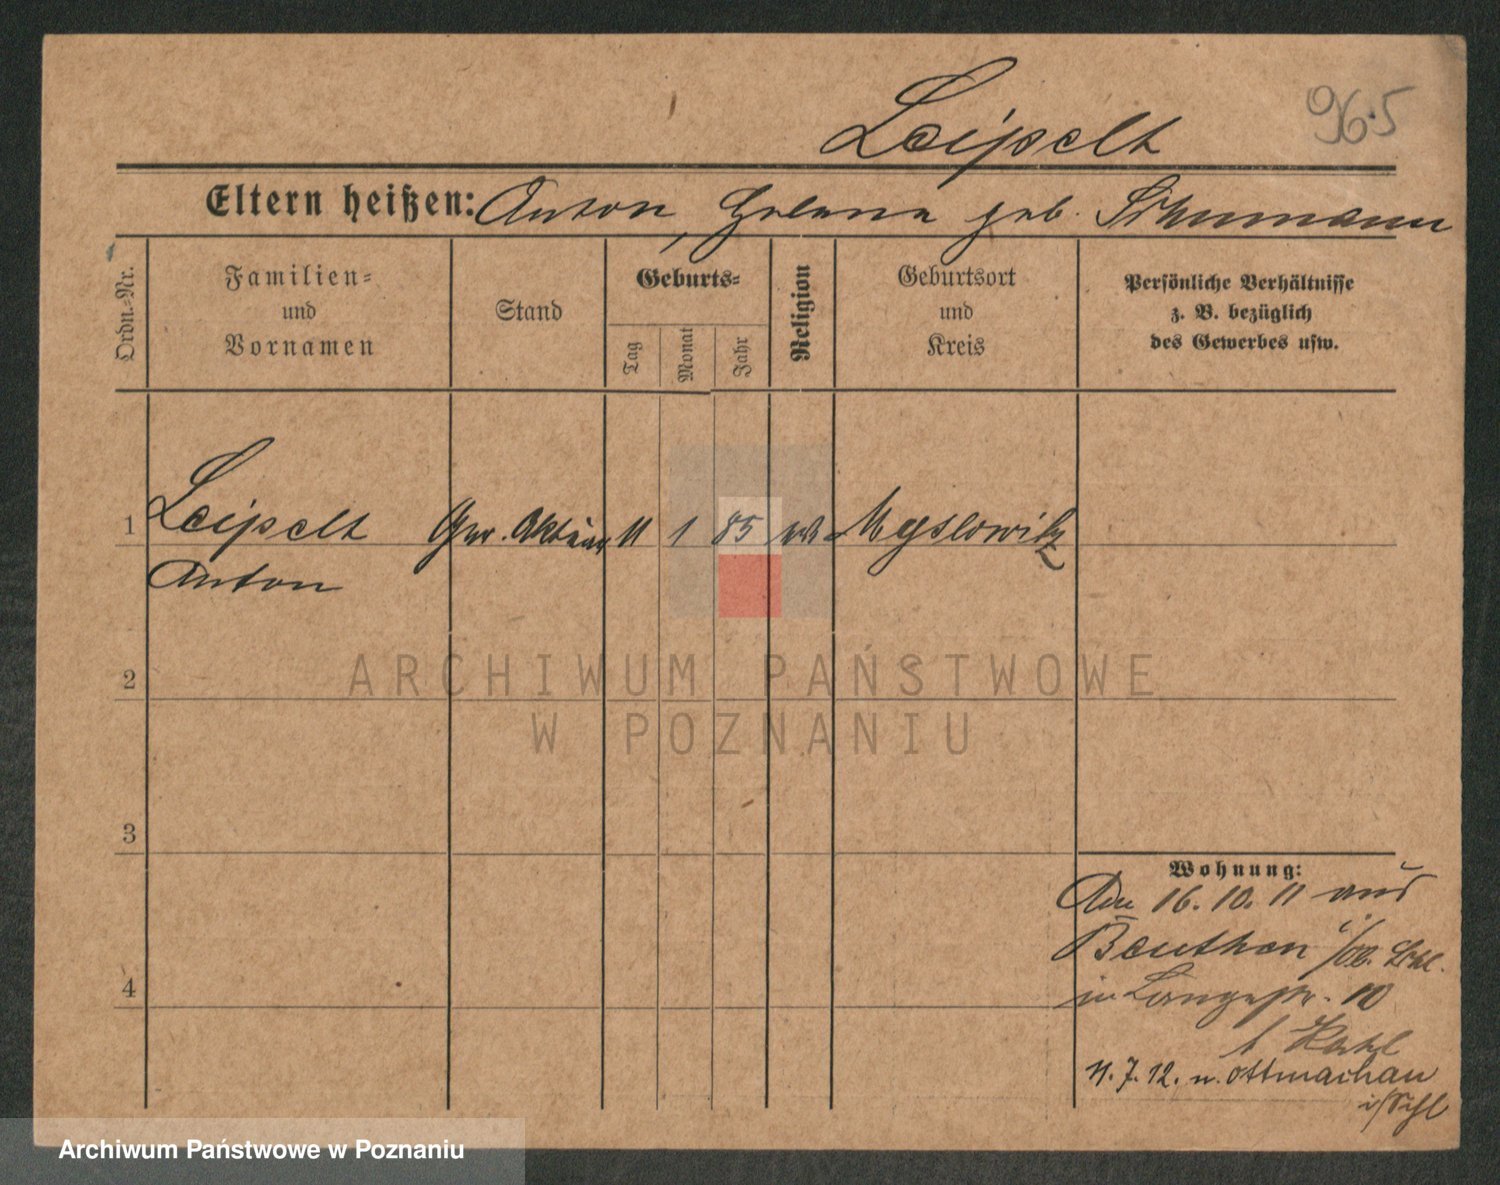 Leipelt
96.5
Eltern heißen: Anton, Helena geb. Schumann
Ordn.-Nr.
Familien- und Vornamen
Stand
Geburts-
Tag
Monat
Jahr
Religion
Geburtsort und Kreis
Persönliche Verhältnisse
z. B. bezüglich
des Gewerbes usw.
1 Leipelt Ger. Aktuar 11 1 85 Myslowitz
Anton
2
3
4
ARCHIWUM PAŃSTWOWE
W POZNANIU
Wohnung:
Am 16.10.11 aus
Beuthen i/Ob. Schl.
in Langestr. 10
b
11.7.12. n. Ottmachau
i/Schl
Archiwum Państwowe w Poznaniu